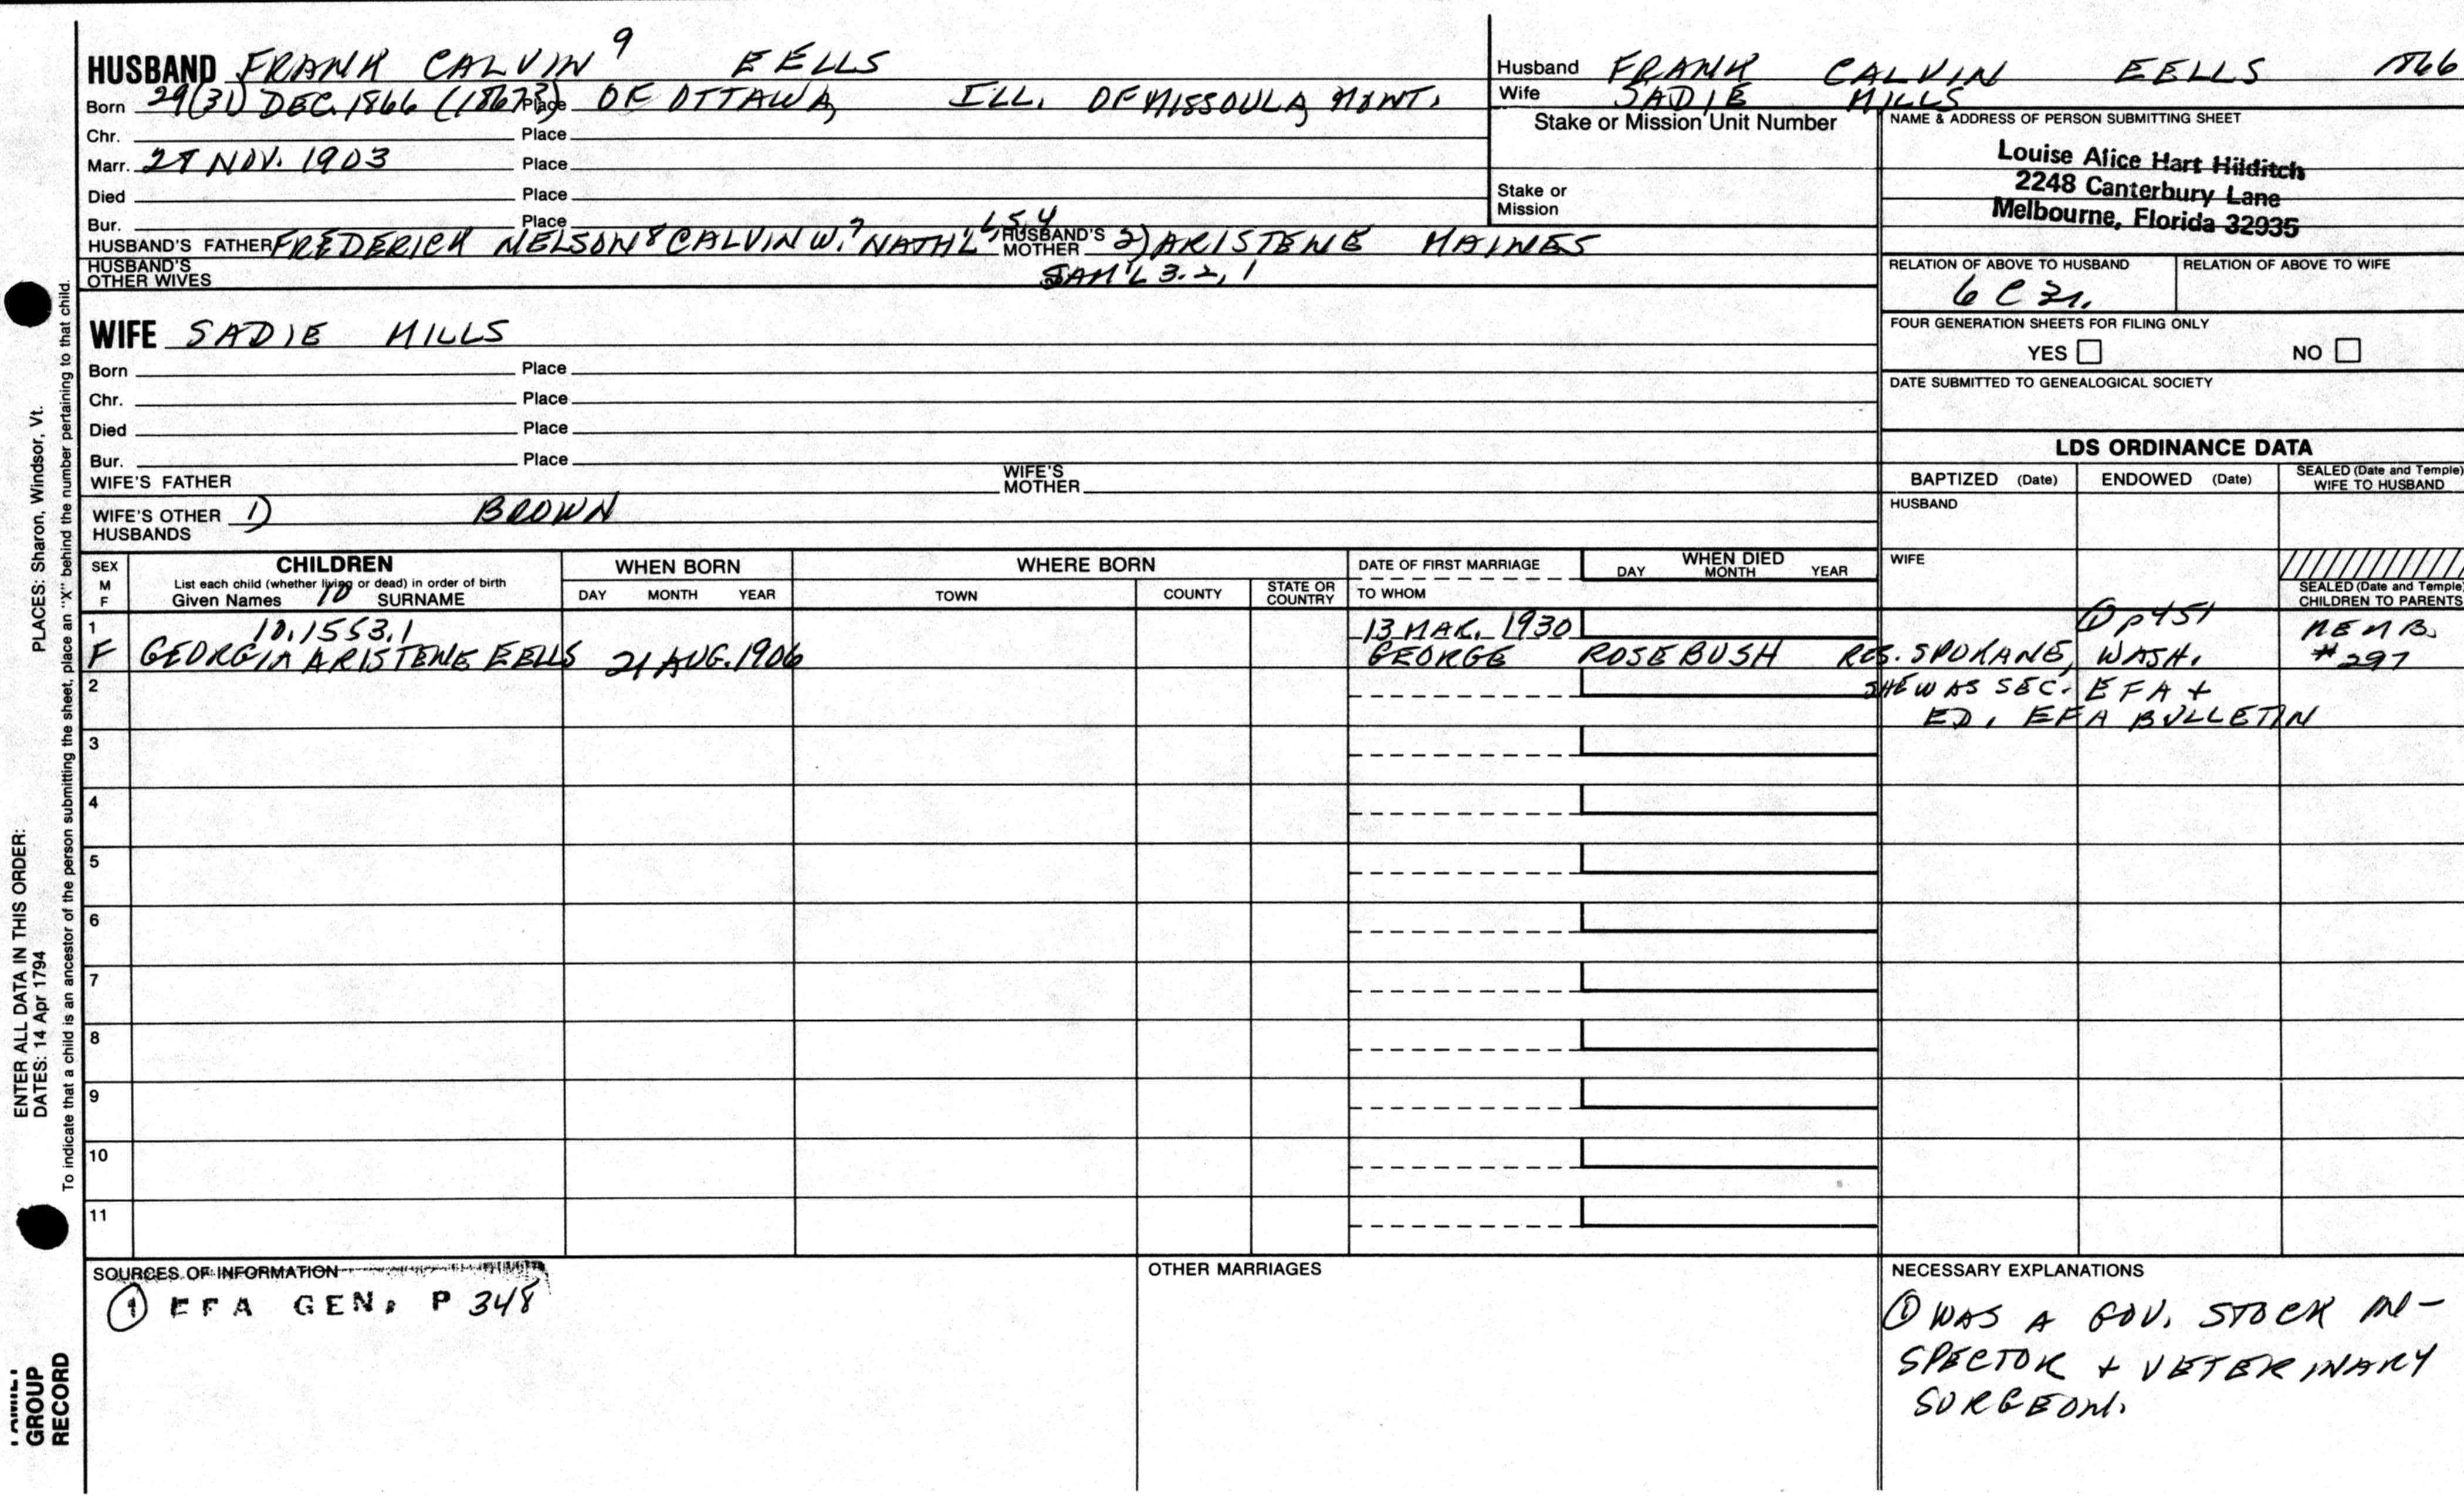 HUSBAND FRANK CALVIN 9 EELLS
Born 29(31) DEC. 1866 (1867?) Place OF OTTAWA, ILL. OF MISSOULA, MONT.
Chr. Place
Marr. 27 NOV. 1903 Place
Died Place
Bur. Place
HUSBAND'S FATHER FREDERICK NELSON 8 CALVIN W. 7 NATH'L 6, 5, 4 HUSBAND'S MOTHER 2) ARISTENE HAINES
HUSBAND'S OTHER WIVES SAM'L 3, 2, 1
WIFE SADIE MILLS
Born Place
Chr. Place
Died Place
Bur. Place
WIFE'S FATHER WIFE'S MOTHER
WIFE'S OTHER HUSBANDS 1) BROWN
Husband FRANK CALVIN EELLS 1866
Wife SADIE MILLS
Stake or Mission Unit Number
Stake or Mission
NAME & ADDRESS OF PERSON SUBMITTING SHEET
Louise Alice Hart Hilditch
2248 Canterbury Lane
Melbourne, Florida 32935
RELATION OF ABOVE TO HUSBAND RELATION OF ABOVE TO WIFE
6 C 3r.
FOUR GENERATION SHEETS FOR FILING ONLY
YES NO
DATE SUBMITTED TO GENEALOGICAL SOCIETY
LDS ORDINANCE DATA
BAPTIZED (Date) ENDOWED (Date) SEALED (Date and Temple) WIFE TO HUSBAND
HUSBAND
WIFE
SEALED (Date and Temple) CHILDREN TO PARENTS
SEX M F CHILDREN WHEN BORN WHERE BORN DATE OF FIRST MARRIAGE WHEN DIED
List each child (whether living or dead) in order of birth
Given Names 10 SURNAME DAY MONTH YEAR TOWN COUNTY STATE OR COUNTRY TO WHOM DAY MONTH YEAR
1 10.1553.1 13 MAR. 1930 ① p451 MEMB.
F GEORGIA ARISTENE EELLS 21 AUG. 1906 GEORGE ROSEBUSH RES. SPOKANE, WASH. #297
2 SHE WAS SEC. EFA +
ED. EFA BULLETIN
3
4
5
6
7
8
9
10
11
SOURCES OF INFORMATION
① EFA GEN. P 348
OTHER MARRIAGES
NECESSARY EXPLANATIONS
① WAS A GOV. STOCK IN-
SPECTOR + VETERINARY
SURGEON.
PLACES: Sharon, Windsor, Vt.
ENTER ALL DATA IN THIS ORDER:
DATES: 14 Apr 1794
To indicate that a child is an ancestor of the person submitting the sheet, place an "X" behind the number pertaining to that child.
FAMILY
GROUP
RECORD